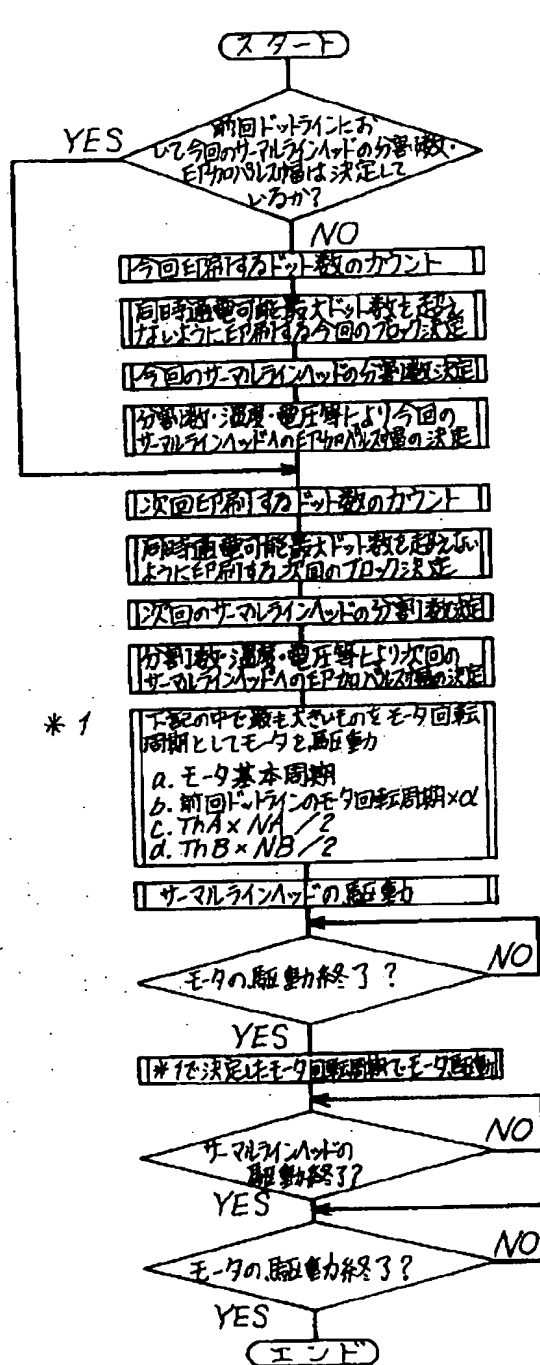 スタート
前回ドットラインにお
いて今回のサーマルラインヘッドの分割数・
印加パルス幅は決定して
いるか?
YES
NO
今回印刷するドット数のカウント
同時通電可能最大ドット数を超え
ないように印刷する今回のブロック決定
今回のサーマルラインヘッドの分割数決定
分割数・温度・電圧等により今回の
サーマルラインヘッドへの印加パルス幅の決定
次回印刷するドット数のカウント
同時通電可能最大ドット数を超えない
ように印刷する次回のブロック決定
次回のサーマルラインヘッドの分割数決定
分割数・温度・電圧等により次回の
サーマルラインヘッドへの印加パルス幅の決定
*1
下記の中で最も大きいものをモータ回転
周期としてモータを駆動
a. モータ基本周期
b. 前回ドットラインのモータ回転周期×α
c. ThA × NA / 2
d. ThB × NB / 2
サーマルラインヘッドの駆動
モータの駆動終了?
NO
YES
*1で決定したモータ回転周期でモータ駆動
サーマルラインヘッドの
駆動終了?
NO
YES
モータの駆動終了?
NO
YES
エンド